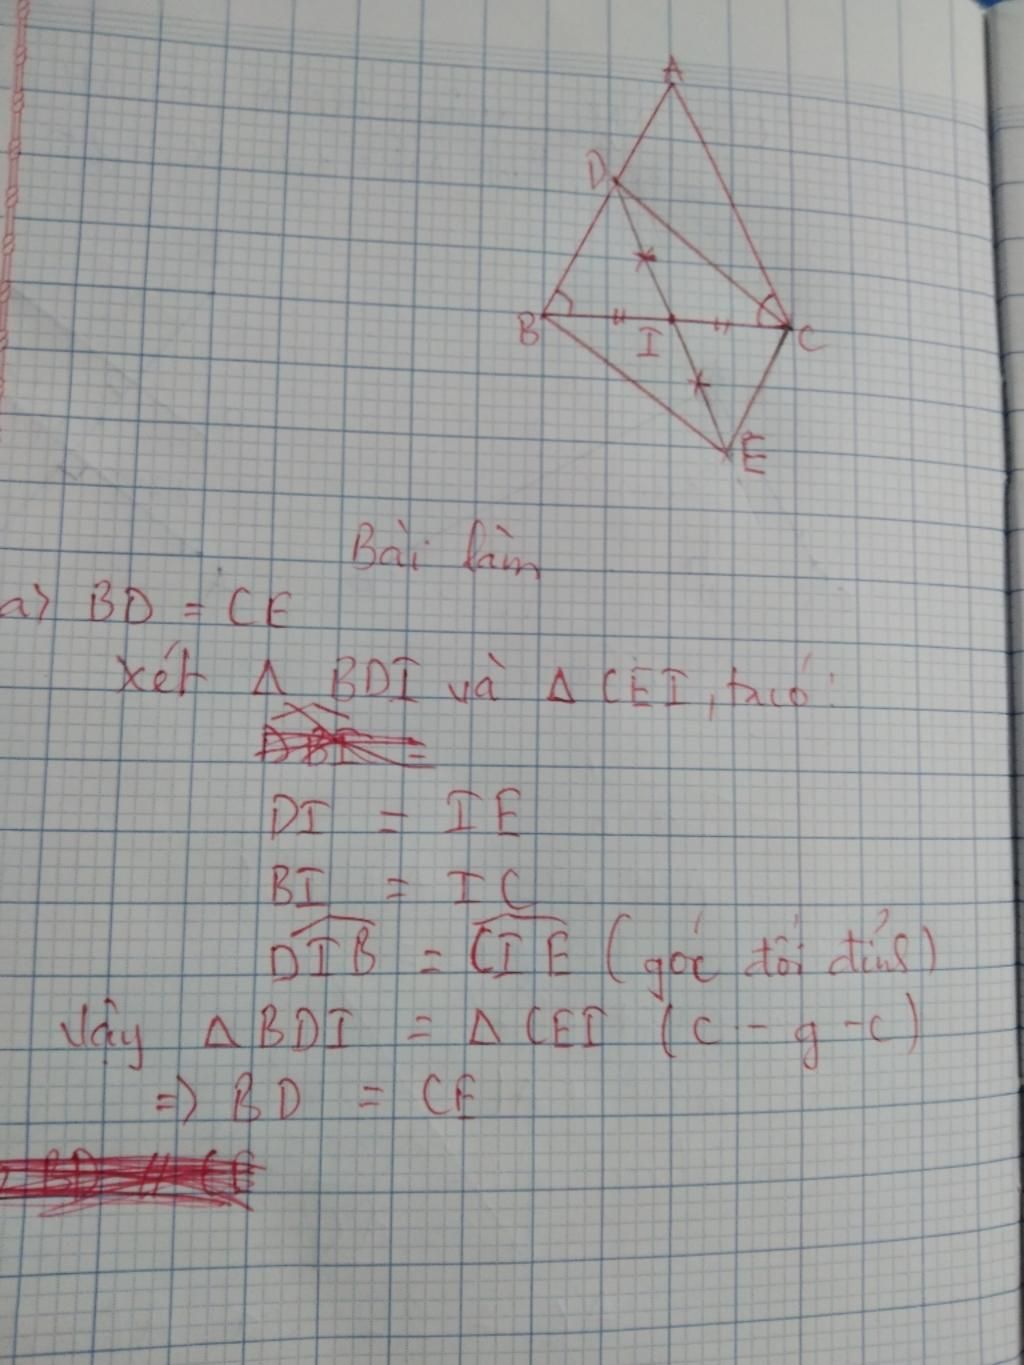 A
D
B
I
C
E
Bài làm
a) BD = CE
Xét Δ BDI và Δ CEI, ta có:
DI = IE
BI = IC
DIB = CIE (góc đối đỉnh)
Vậy Δ BDI = Δ CEI (c - g - c)
=> BD = CE
BD // CE